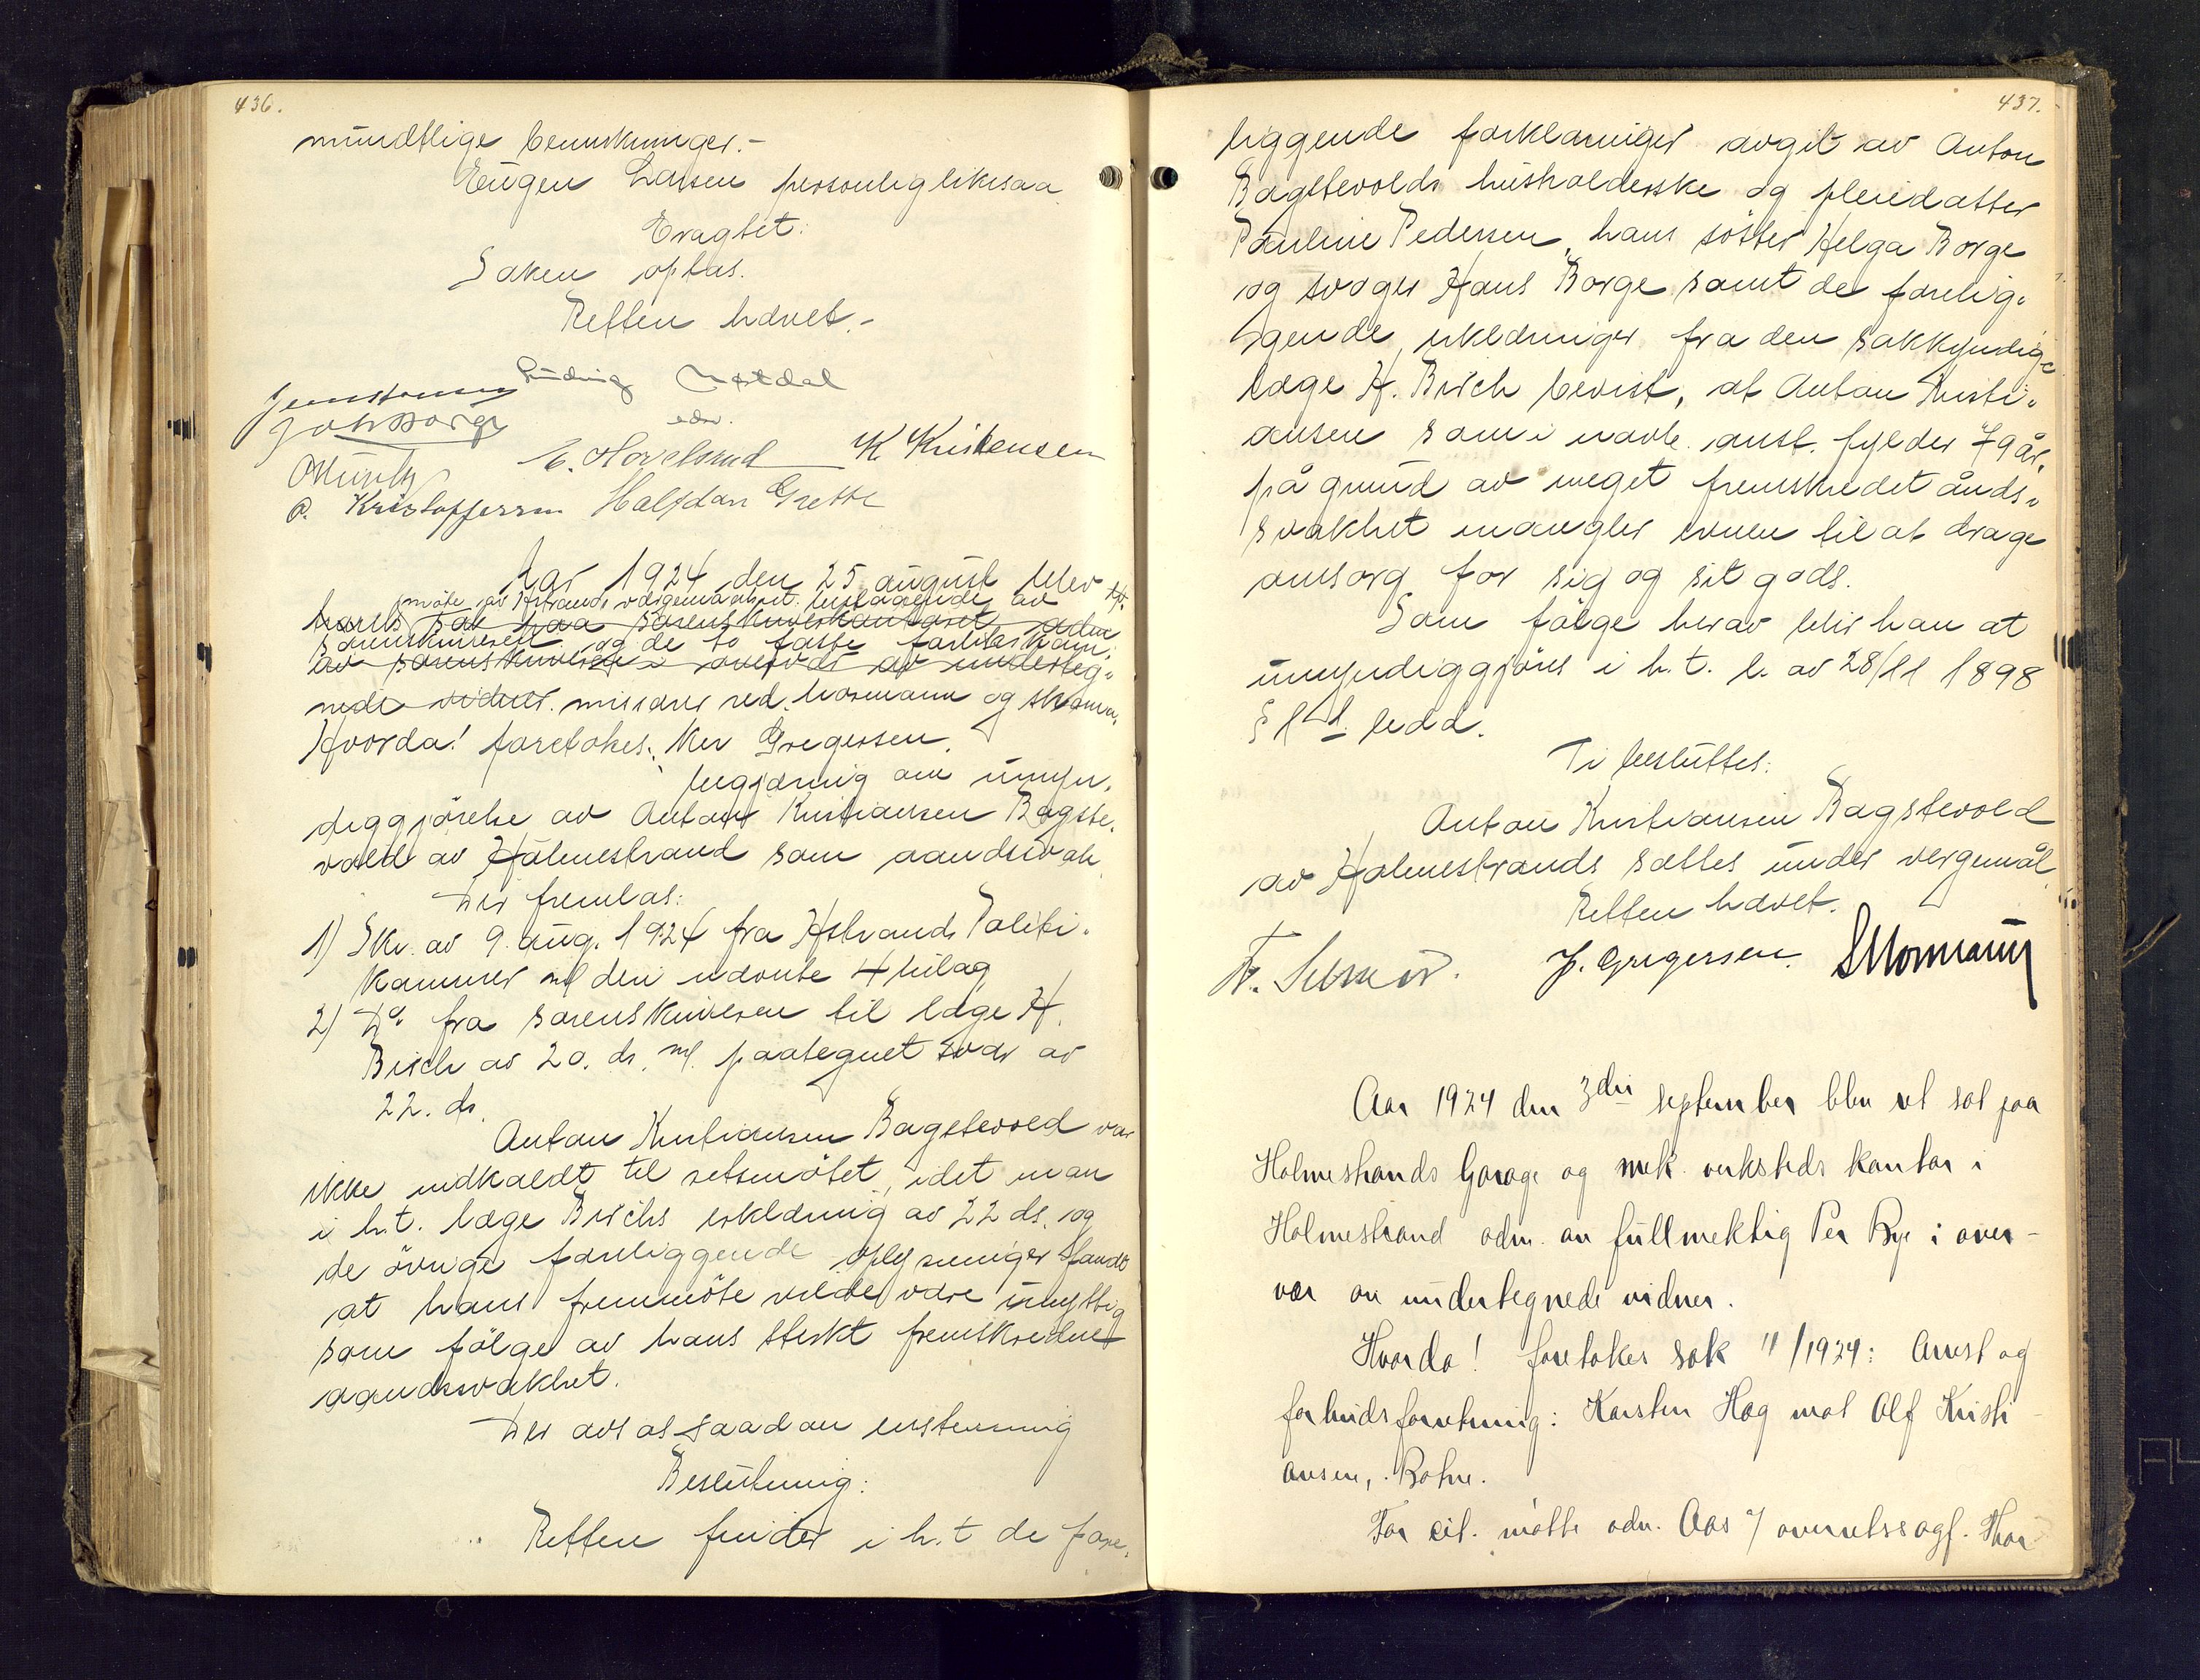 436.
mundtlige bemerkninger.-
Eugen Larsen personlig likesaa
Eragtet:
Saken optas.
Retten hævet.-
Ludvig Østdal
edv.
E. Hovelsrud K Kristensen
P. Kristoffersen Halfdan Grette
Aar 1924 den 25 august blev
møte av Hstrands vergemaalsret bestaaende av
holdt sat paa sorenskriverkontoret adm
sorenskriveren og de to faste
av sorenskriveren i overvær av underteg-
nede vidner. red. Mosmann og
Hvorda! foretokes: Nr
Gregersen.
begjæring om umyn-
diggjørelse av Anton Kristiansen Bagste-
vold av Holmestrand som aandssvak
Der fremlas:
1) Skr. av 9. aug. 1924 fra Hstrands Politi-
kammer m/ den nævnte 4 bilag
2) Do fra sorenskriveren til læge H.
Birch av 20. ds. m/ paategnet svar av
22. ds.
Anton Kristiansen Bagstevold var
ikke indkaldt til retsmøtet, idet man
i h.t. læge Birchs erklæring av 22 ds. og
de øvrige foreliggende oplysninger fandt
at hans fremmøte vilde være unyttig
som følge av hans sterkt fremskredne
aandssvakhet.
Der avsas saadan enstemmig
Beslutning:
Retten finder i h.t de fore-
437.
liggende forklaringer avgit av Anton
Bagstevolds husholderske og pleiedatter
Pauline Pedersen, hans søster Helga Borge
og svoger Hans Borge samt de forelig-
gende erklæringer fra den sakkyndige
læge H. Birch bevist, at Anton Kristi-
ansen som i nævte. aust. fylder 79 år,
på grund av meget fremskredet ånds-
svakhet mangler evnen til at drage
omsorg for sig og sit gods.
Som følge herav blir han at
umyndiggjøres i h.t. l. av 28/11 1898
§ 1 1. ledd.
Ti besluttes:
Anton Kristiansen Bagstevold
av Holmestrand sættes under vergemål
Retten hævet.
J. Gregersen. SMosmann
Aar 1924 den 3die september blev ret sat paa
Holmestrands Garage og mek. verksteds kontor i
Holmestrand adm. av fullmektig Per Rye i over-
vær av undertegnede vidner.
Hvorda! foretokes sak 11/1924: Arrest og
forbudsforretning: Karsten Hog mot Olf Kristi-
ansen, Bohre.
For cit. møtte adv. Aas f/ overretssagf. Thor-